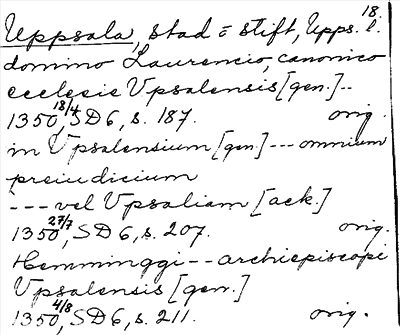 18.
Uppsala, stad o stift, Upps. l.
domino Laurencio, canonico
ecclesie Upsalensis [gen.] --
1350 18/4, SD 6, s. 187. orig.
in Vpsalensium [gen] --- omnium
preiudicium
--- vel Vpsaliam [ack.]
1350 27/7, SD 6, s. 207. orig.
Hemminggi -- archiepiscopi
Vpsalensis [gen.]
1350 4/8, SD 6, s. 211. orig.